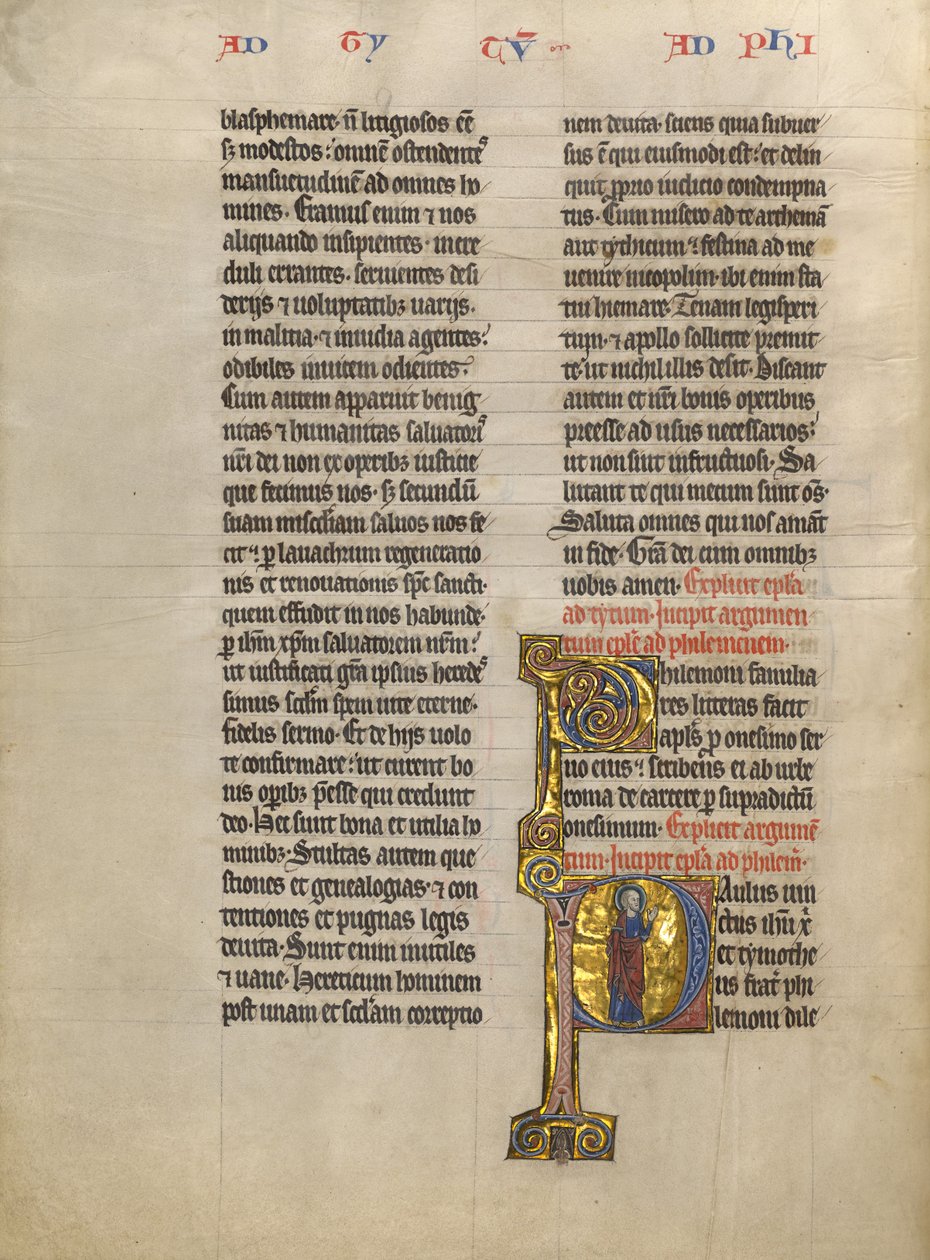 AD TY TV̄ om AD PHI
blasphemare· ñ litigiosos eē
sꝫ modestos: omnē ostendentes
mansuetudinē ad omnes ho
mines· Eramus enim ⁊ nos
aliquando insipientes· incre
duli errantes· seruientes desi
derijs ⁊ uoluptatibꝫ uarijs·
in malitia· ⁊ inuidia agentes:
odibiles inuicem odientes:
Cum autem apparuit benig
nitas ⁊ humanitas saluatoris
nr̄i dei non ex operibꝫ iusticie
que fecimus nos· sꝫ secundū
suam misc̄diam saluos nos fe
cit: ꝑ lauachrum regeneratio
nis et renouationis sp̄c sancti·
quem effudit in nos habunde·
ꝑ ih̄m xp̄m saluatorem nr̄m:
ut iustificati gr̄a ipsius heredes
simus scd̄m spem uite eterne·
fidelis sermo· Et de hijs uolo
te confirmare: ut curent bo
nis oꝑibꝫ p̄esse qui credunt
deo· Hec sunt bona et utilia ho
minibꝫ· Stultas autem que
stiones et genealogias· ⁊ con
tentiones et pugnas legis
deuita· Sunt enim inutiles
⁊ uane· Hereticum hominem
post unam et scd̄am correptio
nem deuita· sciens quia subuer
sus ē qui eiusmodi est: et delin
quit ꝓprio iudicio condempna
tus· Cum misero ad te archemā
aut tythicum: festina ad me
uenire nicopolim· ibi enim sta
tui hiemare· Zenam legisperi
tum· ⁊ apollo sollicite premit
te· ut nichil illis desit· Discant
autem et nr̄i bonis operibus
preesse ad usus necessarios:
ut non sint infructuosi· Sa
lutant te qui mecum sunt om̄s·
Saluta omnes qui nos amāt
in fide· Gr̄a dei cum omnibꝫ
uobis amen· Explicit ep̄la
ad tytum· Incipit argumen
tum ep̄le ad philemonem·
Philemoni familia
res litteras facit
apl̄s ꝑ onesimo ser
uo eius: scribens ei ab urbe
roma de carcere ꝑ supradictū
onesimum· Explicit argumē
tum· Incipit ep̄la ad philem̄·
PAulus uin
ctus ih̄u x̄
et tymothe
us frat̄ phi
lemoni dile